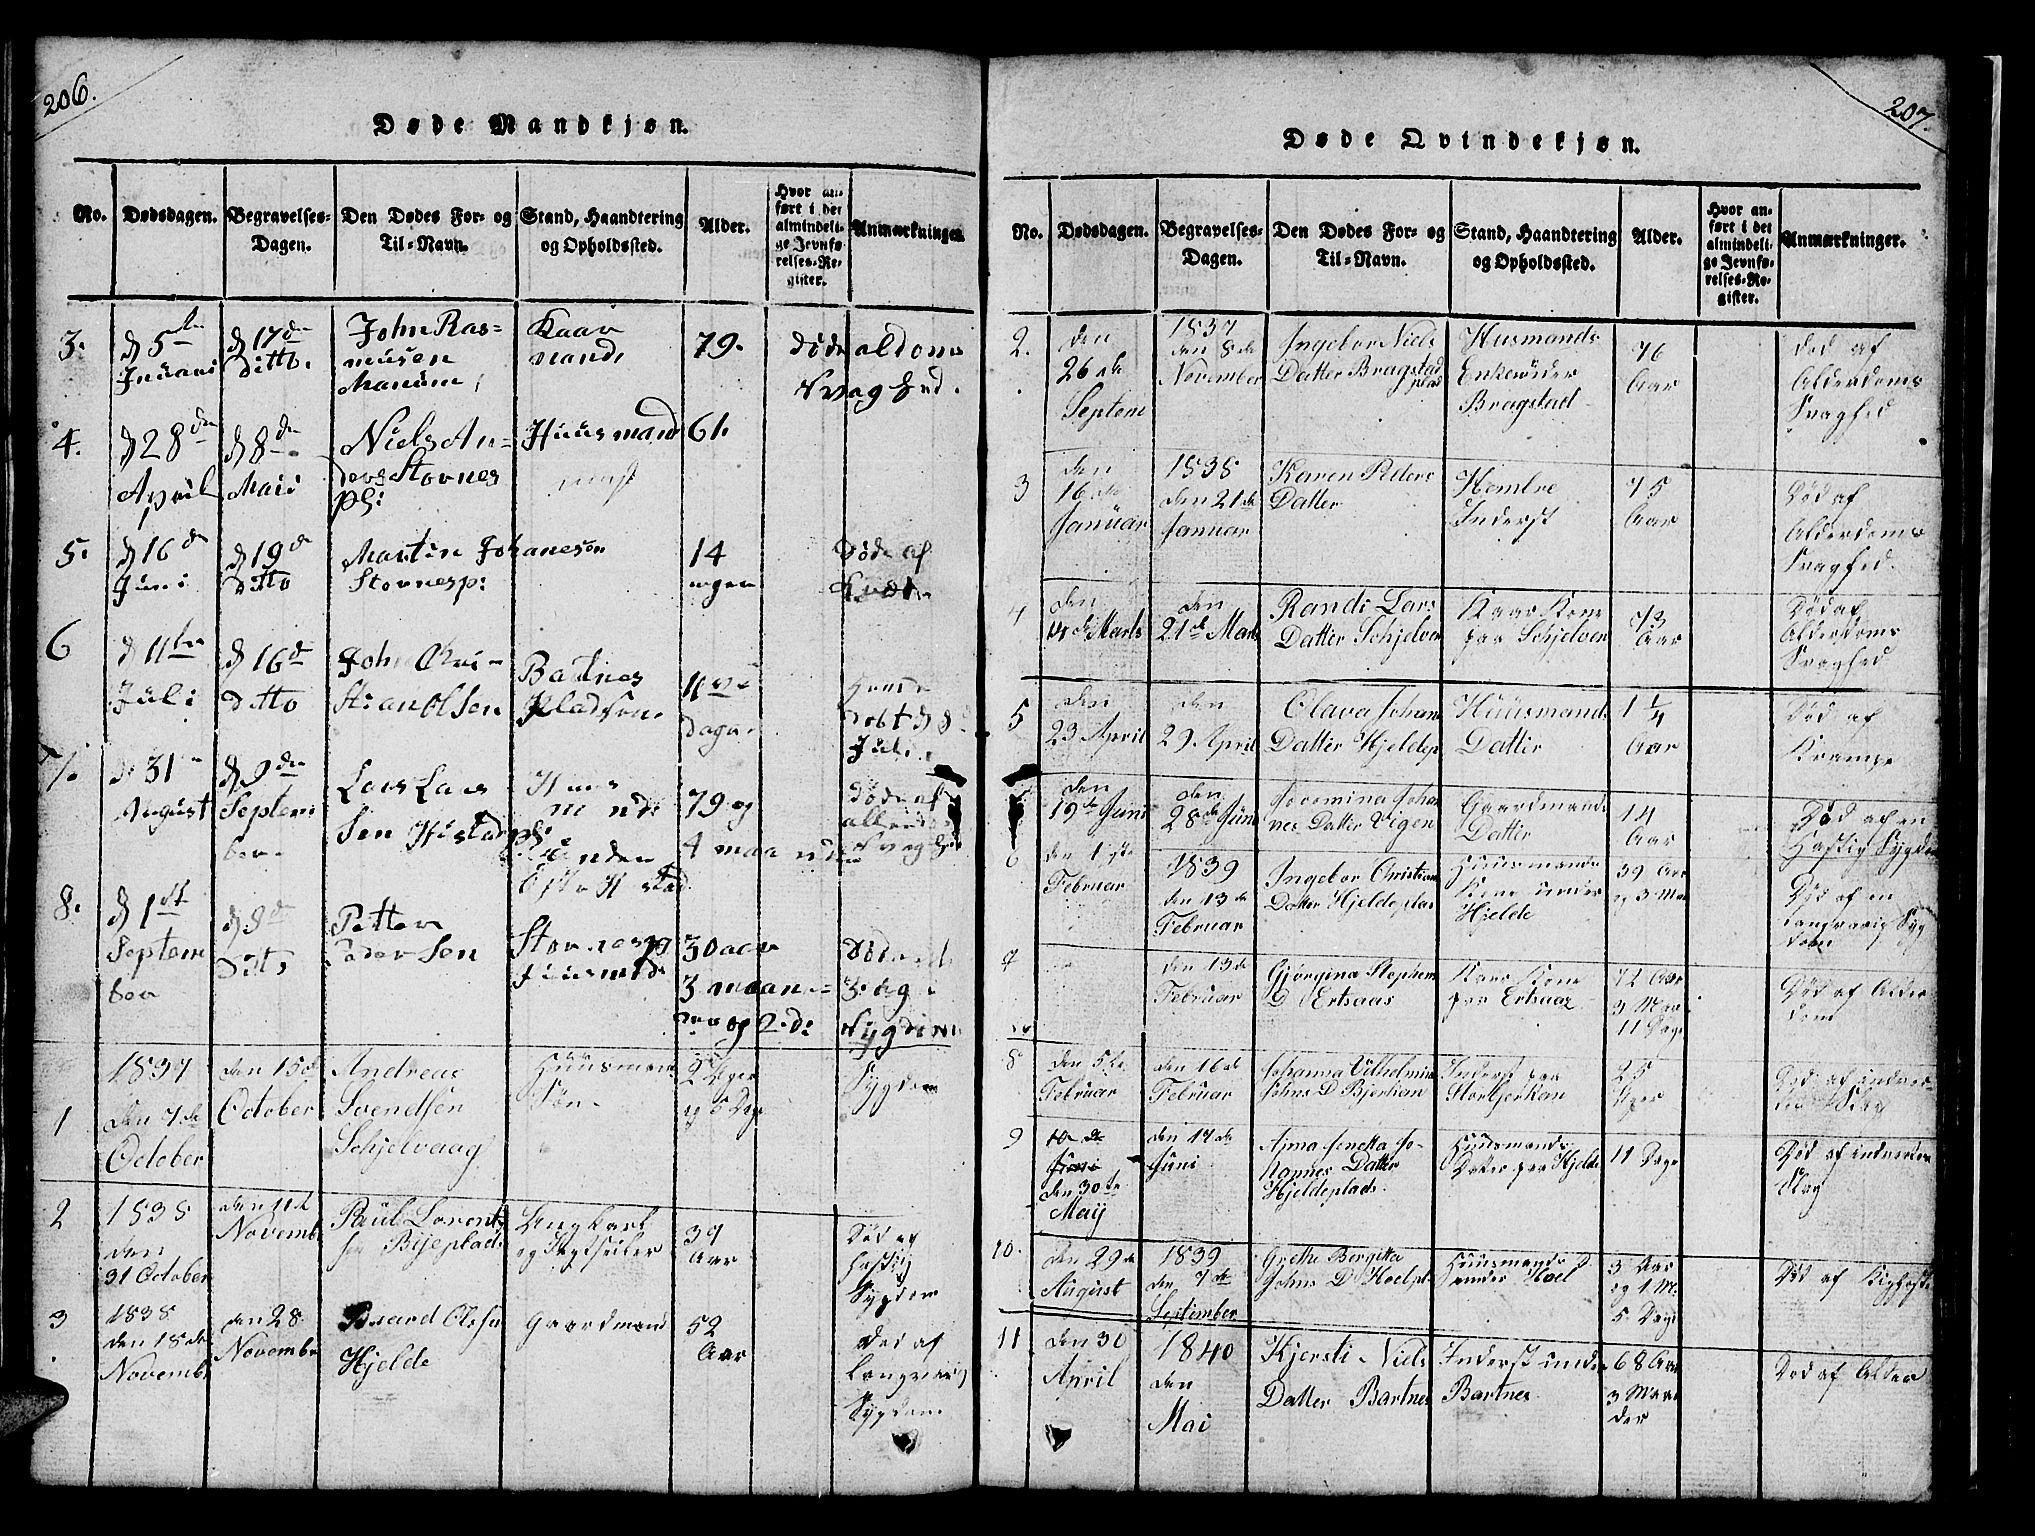 206.
Døde Mandkjøn.
No. Dødsdagen. Begravelses-Dagen. Den Dødes For- og Til-Navn. Stand, Haandtering og Opholdssted. Alder. Hvor anført i det almindelige Jevnførelses-Register. Anmærkninger.
3. d 5te Januari d 17de Ditto. John Rasmusen Manum, Kaarmand. 79. døde aldoms Svaghed.
4. d 28de April d 8de Maii Niels Anders Stovnes pl: Huusmand 61.
5. d 16d Juni d 19d ditto Martin Johaneson Stovnesp: 14 ugen døde af
6 d 11te Juli d 16d ditto John Christian Olsen Bartnes Pladsen 11 dage døbt d 8 Juli.
7. d 31 August d 9de September Lars Larssen Hustad pl: Huusmand: Enden Hustad 79 og 4 maaneder døde af Svaghed
8. d 1st September d 8d dito Petter Pedersen Stovnespl Huusmand 30 aar 3 maaneder og 2 d: døde Sygdom
1 1837 Den 7de October den 15de October Andreas Svendsen Schjelvaag Huusmands Søn 2 Uger og 6 Dage Sygdom
2 1838 den 31 October den 11te Novemb Paul Lorentsen Bijeplads 39 Aar Død af hastig Sygdom
3 1838 den 18de Novemb den 28 Novembr Baard Olsen Hjelde Gaardmand 52 Aar Død af Langvarig Sygdom
207.
Døde Qvindekjøn.
No. Dødsdagen. Begravelses-Dagen. Den Dødes For- og Til-Navn. Stand, Haandtering og Opholdssted. Alder. Hvor anført i det almindelige Jevnførelses-Register. Anmærkninger.
2. den 26de Septem 1837 den 8de November Ingebor Niels Datter Bragstad plad Husmands Enke under Bragstad 76 Aar død af Alderdoms Svaghed
3 den 16de Januar 1838 den 21de Januar Karen Peders Datter Hembre Inderst 75 Aar Død af Alderdoms Svaghed.
4 den Marts den 21de Mart Randi Lars Datter Schjelver Kaar Kone paa Schjelver 73 Aar Død af Alderdoms Svaghed
5 den 23 April den 29 April Olava Johan Datter Hjeldepl Huusmands Datter 1 1/4 Aar Død af Krampe
den 19de Juni den 28de Juni Johan nes Datter Vigen Gaardmands Datter 14 Aar Død af en Hastig Sygdom
6 den 1ste Februar 1839 den 13de Februar Ingebor Christian Datter Hjeldeplas Huusmands Kone under Hjelde 39 Aar og 3 Maa Død af en Langvarig Sygdom
7 den 13de Februar Gjørgina Stephen D Ertsaas Kaar Kone paa Ertsaas 72 Aar 3 Maa 11 Dage Død af Alderdom
8 den 5te Februar den 16de Februar Johanna Vilhelmina Johns D Bjerkan Inderst paa Storbjerkan 25 Uger Død af
9 10de Juni den 30te Maij den 17de Juni Anna Jonetta Johannes Datter Hjeldeplads Huusmands Datter paa Hjelde 11 Dage Død af
10. den 29de August 1839 den 7de September Grethe Bergitta Johns D Hoelpl Huusmands D under Hoel 3 Aar og 1 M. 5 Dage Død af Kighoste
11 den 30 April 1840 den Mai Kjersti Niels Datter Bartnes Inderst under Bartnes 68 Aar 3 Maaneder Død af Alder